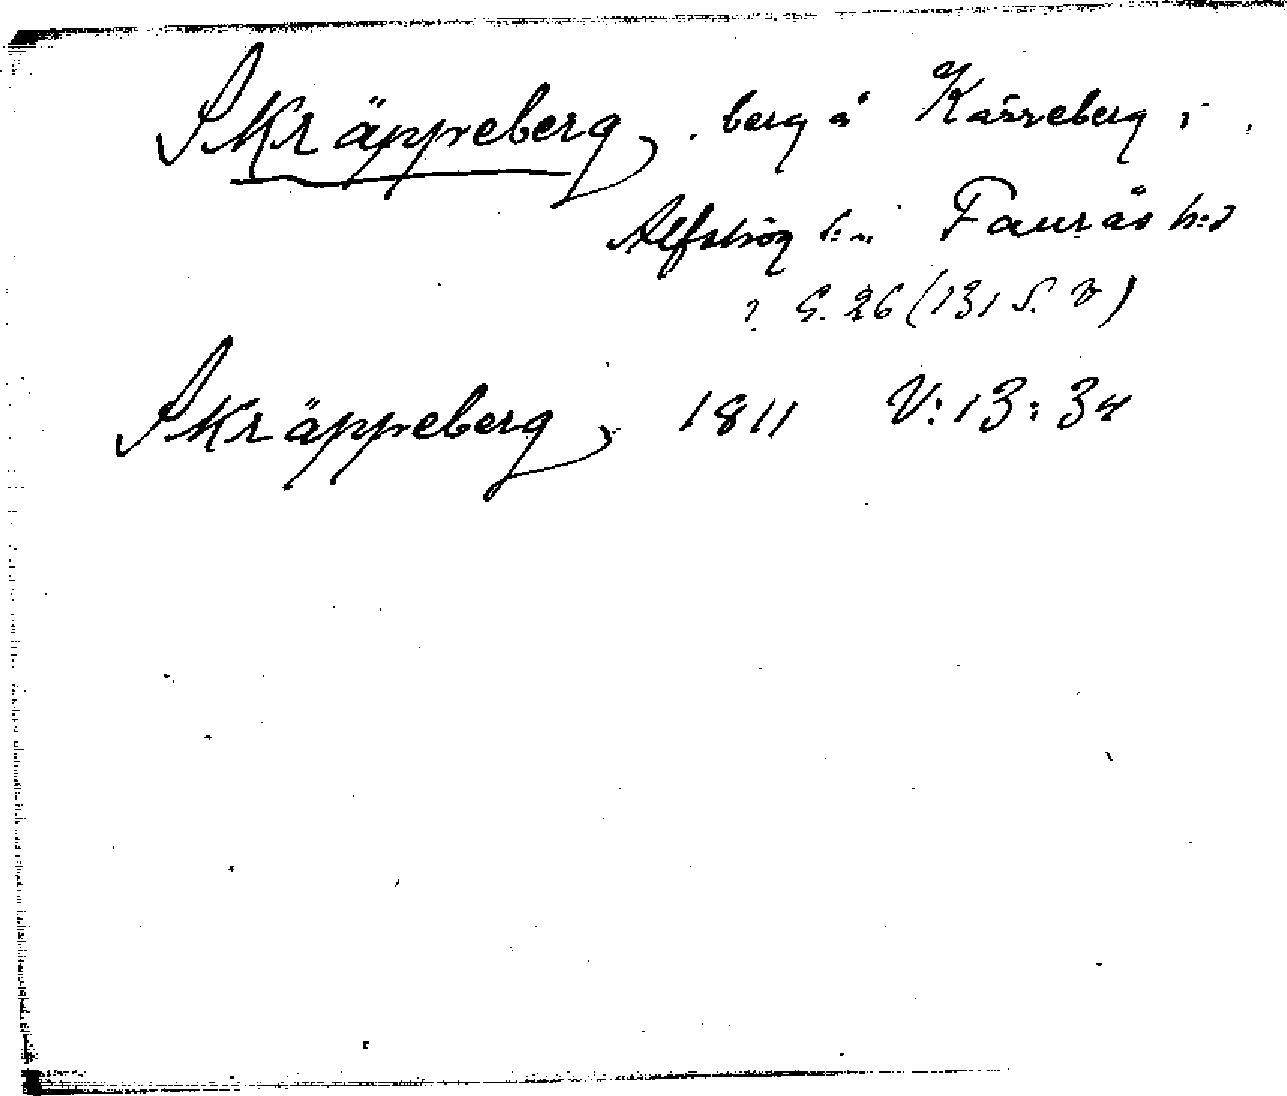 Skräppeberg, berg å Kärreberg i
Alfshög s:n Faurås h:d
? G. 26 (131 S. V)
Skräppeberg, 1811 V:13:34